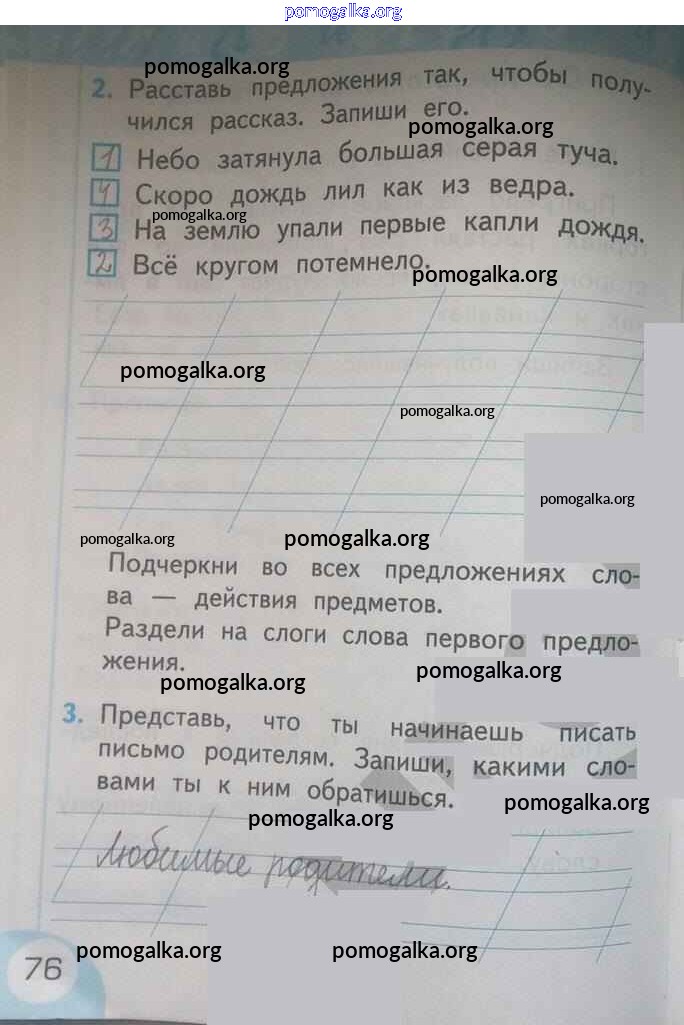 pomogalka.org
pomogalka.org
2. Расставь предложения так, чтобы полу-
чился рассказ. Запиши его.
pomogalka.org
1 Небо затянула большая серая туча.
4 Скоро дождь лил как из ведра.
pomogalka.org
3 На землю упали первые капли дождя.
2 Всё кругом потемнело.
pomogalka.org
pomogalka.org
pomogalka.org
pomogalka.org
pomogalka.org pomogalka.org
Подчеркни во всех предложениях сло-
ва — действия предметов.
Раздели на слоги слова первого предло-
жения.
pomogalka.org
pomogalka.org
3. Представь, что ты начинаешь писать
письмо родителям. Запиши, какими сло-
вами ты к ним обратишься.
pomogalka.org
pomogalka.org
Любимые родители.
pomogalka.org pomogalka.org
76